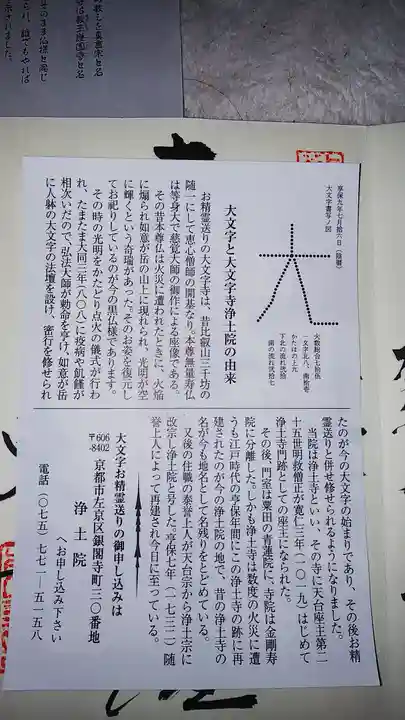 享保九年七月拾六日（陰暦）
大文字書写ノ図
火数総合七拾伍
一文字北八、南拾壱
かたはの上九
下北の流れ弐拾
南の流れ弐拾七
大文字と大文字寺浄土院の由来
お精霊送りの大文字寺は、昔比叡山三千坊の
随一にして恵心僧師の開基なり。本尊無量寿仏
は等身大で慈覚大師の御作による座像である。
その昔本尊仏は火災に遭われたときに、火焔
に煽られ如意が岳の山上に現れられ、光明が空
に輝くという奇瑞があった。そのお姿を復元し
てお祀りしているのが今の黒仏様であります。
その時の光明をかたどり点火の儀式が行わ
れ、たまたま大同三年（八〇八）に疫病や飢饉が
相次いだので、弘法大師が勅命を享け、如意が岳
に人躰の大文字の法壇を設け、密行を修せられ
たのが今の大文字の始まりであり、その後お精
霊送りと併せ修せられるようになりました。
当院は浄土寺といい、その寺に天台座主第二
十五世明救僧正が寛仁三年（一〇一九）はじめて
浄土寺門跡としての座主になられた。
その後、門室は粟田の青蓮院に、寺院は金剛寿
院に分離した。しかも浄土寺は数度の火災に遭
うも江戸時代の亨保年間にこの浄土寺の跡に再
建されたのが今の浄土院の地で、昔の浄土寺の
名が今も地名として名残りをとどめている。
又後の住職の泰誉上人が天台宗から浄土宗に
改宗し浄土院と号した。亨保七年（一七三二）随
誉上人によって再建され今日に至っている。
大文字お精霊送りの御申し込みは
〒606-8402 京都市左京区銀閣寺町三〇番地
浄土院
へお申し込み下さい
電話（〇七五）七七一―五一五八